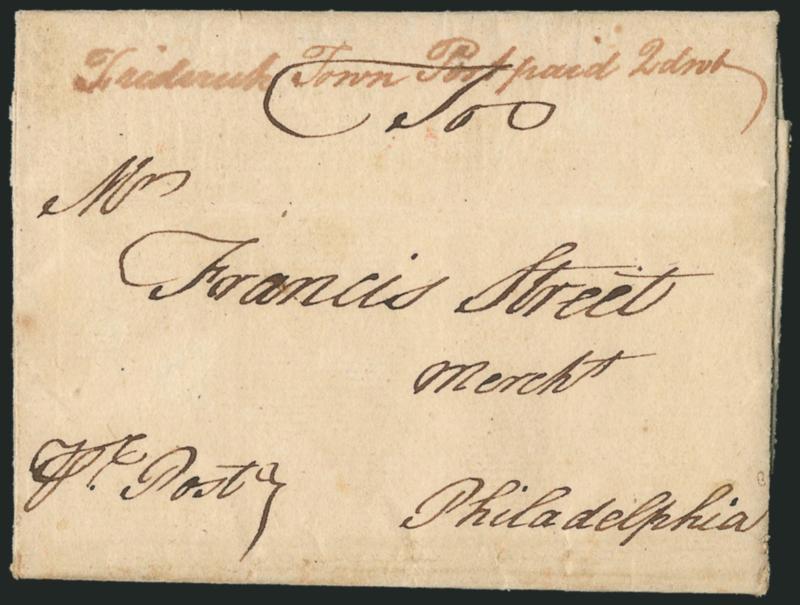 Frederick Town Post paid 2dwt
To
Mr
Francis Street
Mercht
Pr. Post
Philadelphia